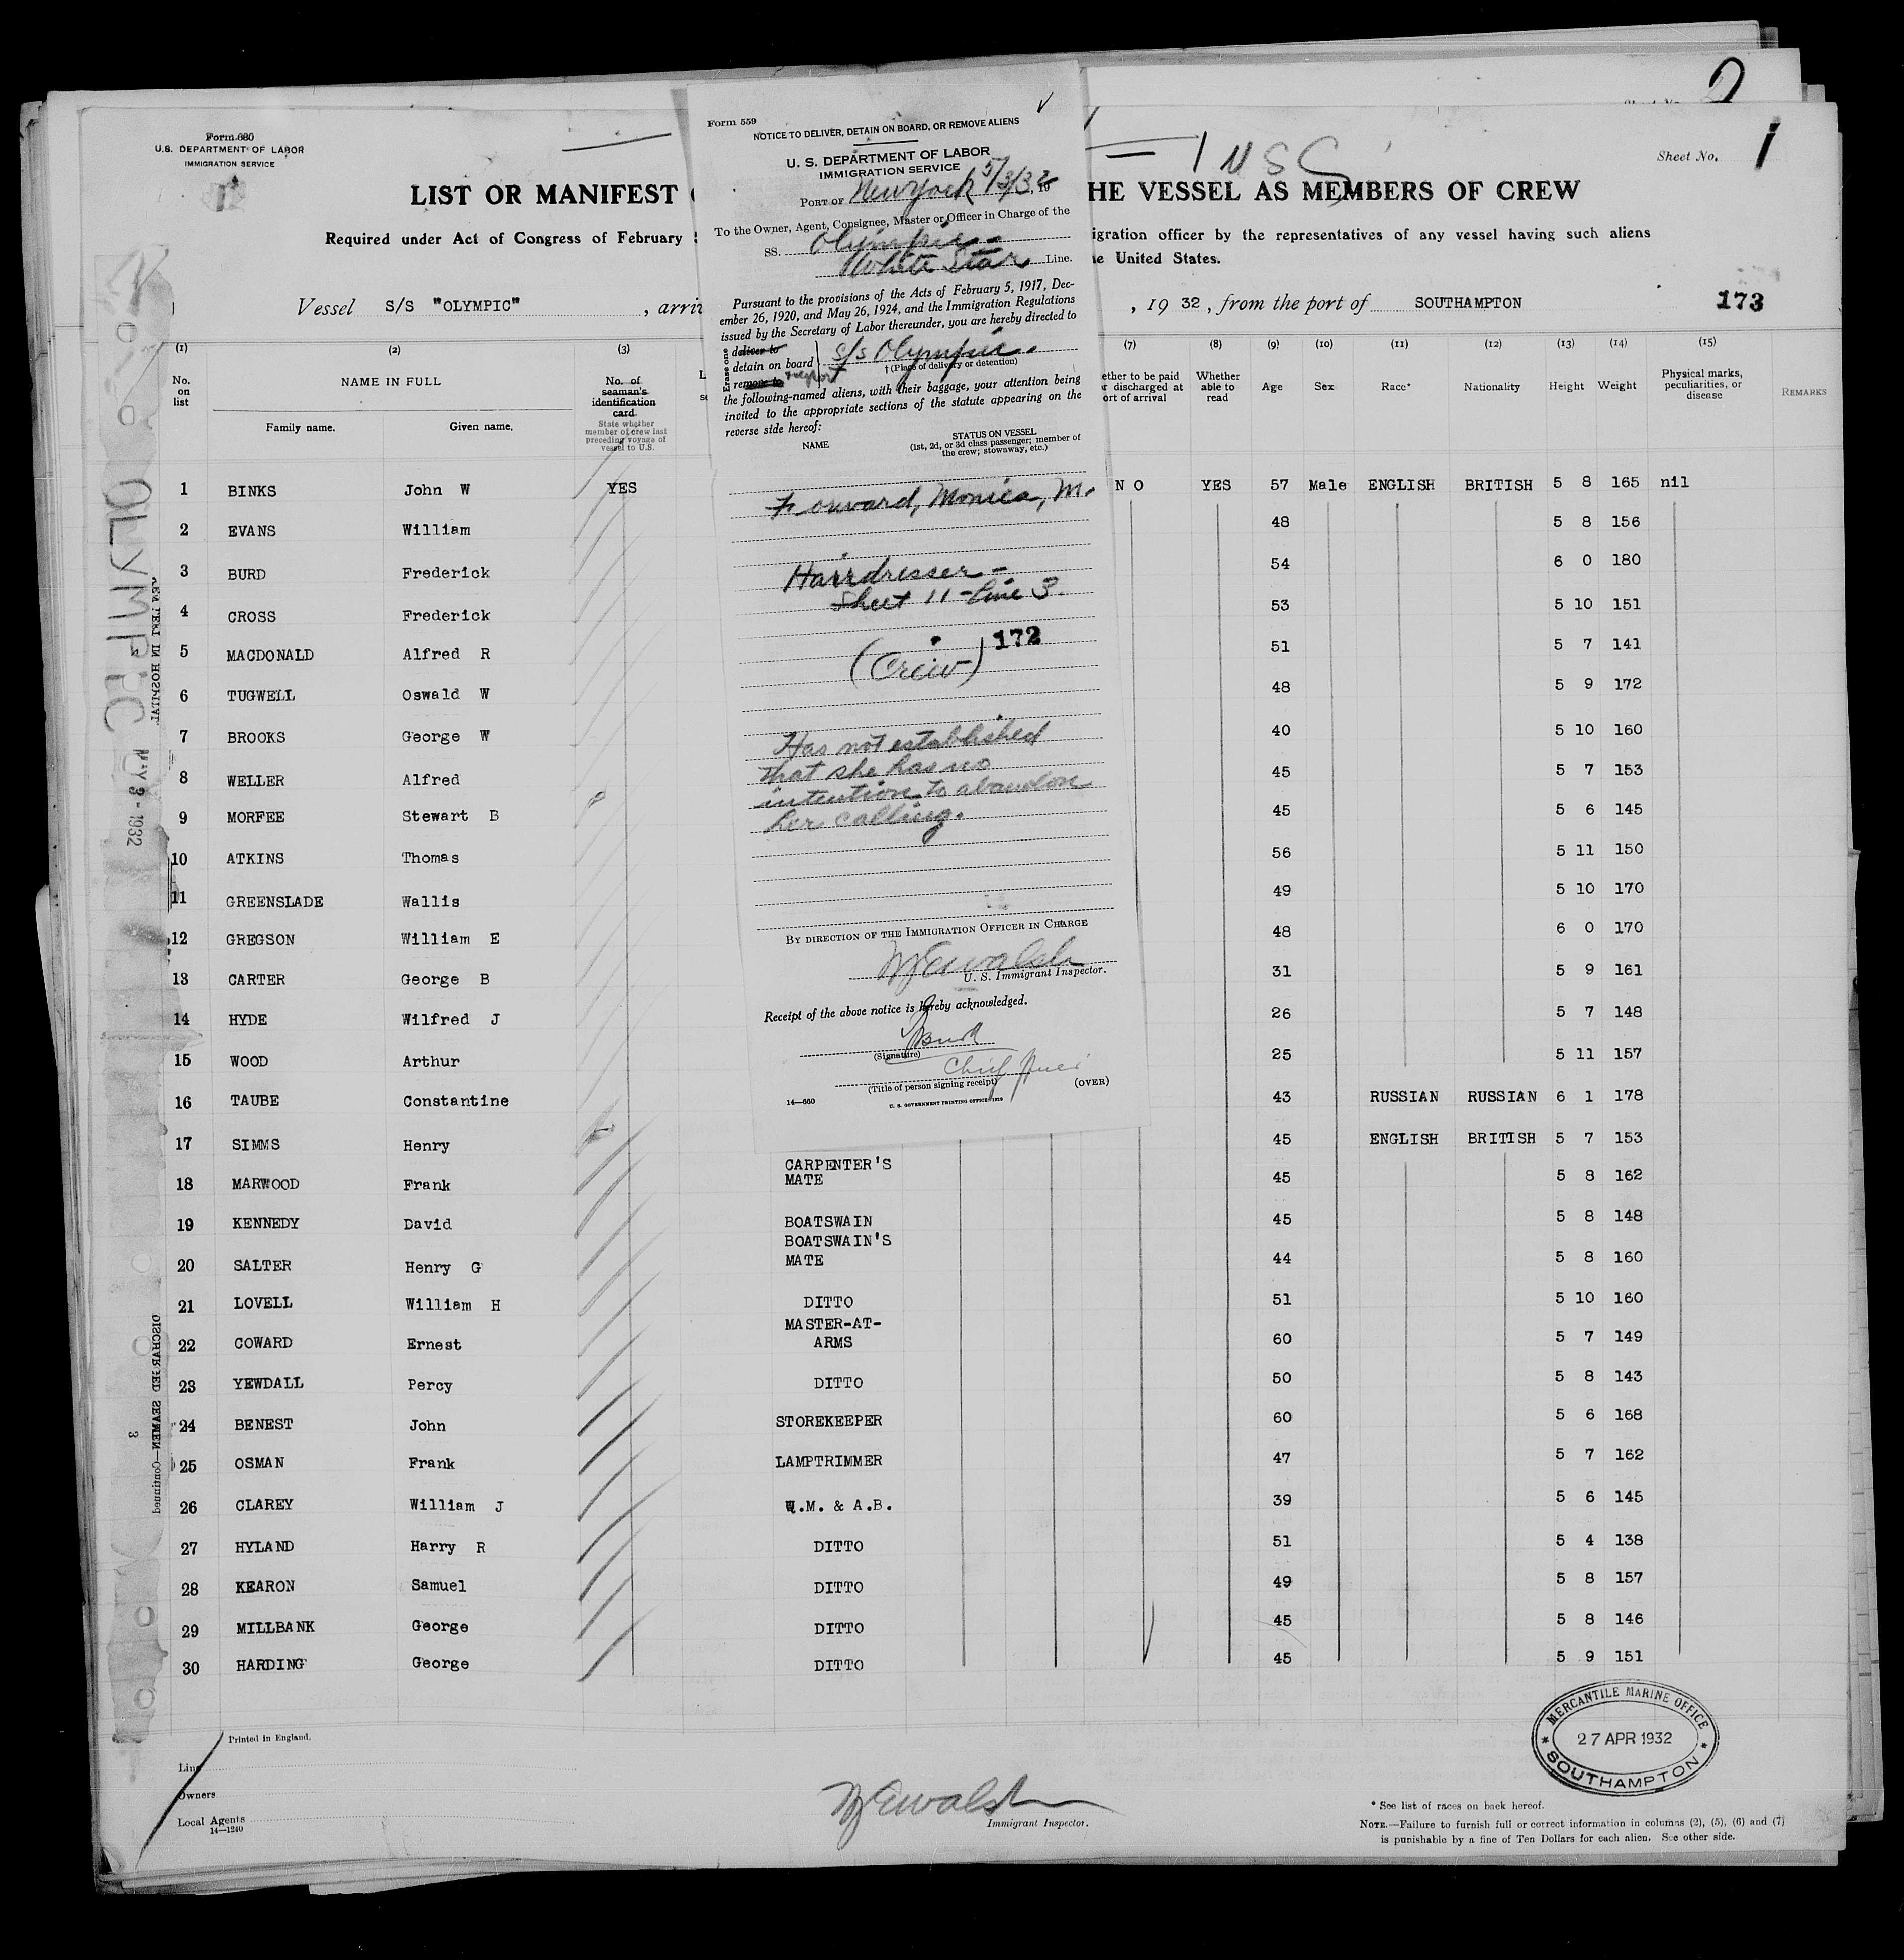 Sheet No. 2
Form 680
U.S. DEPARTMENT OF LABOR
IMMIGRATION SERVICE
Sheet No. 1
LIST OR MANIFEST
HE VESSEL AS MEMBERS OF CREW
Required under Act of Congress of February
igration officer by the representatives of any vessel having such aliens
e United States.
Vessel S/S "OLYMPIC" , arri
, 19 32 , from the port of SOUTHAMPTON 173
Form 559
NOTICE TO DELIVER, DETAIN ON BOARD, OR REMOVE ALIENS
U. S. DEPARTMENT OF LABOR
IMMIGRATION SERVICE
PORT OF New York 5/3/32, 19
To the Owner, Agent, Consignee, Master or Officer in Charge of the
SS. Olympic
White Star Line.
Pursuant to the provisions of the Acts of February 5, 1917, Dec-
ember 26, 1920, and May 26, 1924, and the Immigration Regulations
issued by the Secretary of Labor thereunder, you are hereby directed to
Erase one
deliver to
detain on board S/S Olympic.
remove to
† (Place of delivery or detention)
the following-named aliens, with their baggage, your attention being
invited to the appropriate sections of the statute appearing on the
reverse side hereof:
NAME
STATUS ON VESSEL
(1st, 2d, or 3d class passenger; member of
the crew; stowaway, etc.)
Forward, Monica, M.
Hairdresser -
Sheet 11 - Line 3.
172
(Crew)
Has not established
that she has no
intention to abandon
her calling.
BY DIRECTION OF THE IMMIGRATION OFFICER IN CHARGE
U. S. Immigrant Inspector.
Receipt of the above notice is hereby acknowledged.
(Signature)
Chief
(Title of person signing receipt) (OVER)
14—660
U. S. GOVERNMENT PRINTING OFFICE: 1929
(1) (2) (3) (7) (8) (9) (10) (11) (12) (13) (14) (15)
No. on list
NAME IN FULL
Family name. Given name.
No. of seaman's identification card
State whether member of crew last preceding voyage of vessel to U.S.
ether to be paid
r discharged at
ort of arrival
Whether able to read
Age Sex Race* Nationality Height Weight
Physical marks, peculiarities, or disease
REMARKS
1 BINKS John W YES NO YES 57 Male ENGLISH BRITISH 5 8 165 nil
2 EVANS William 48 5 8 156
3 BURD Frederick 54 6 0 180
4 CROSS Frederick 53 5 10 151
5 MACDONALD Alfred R 51 5 7 141
6 TUGWELL Oswald W 48 5 9 172
7 BROOKS George W 40 5 10 160
8 WELLER Alfred 45 5 7 153
9 MORFEE Stewart B 45 5 6 145
10 ATKINS Thomas 56 5 11 150
11 GREENSLADE Wallis 49 5 10 170
12 GREGSON William E 48 6 0 170
13 CARTER George B 31 5 9 161
14 HYDE Wilfred J 26 5 7 148
15 WOOD Arthur 25 5 11 157
16 TAUBE Constantine 43 RUSSIAN RUSSIAN 6 1 178
17 SIMMS Henry 45 ENGLISH BRITISH 5 7 153
18 MARWOOD Frank CARPENTER'S MATE 45 5 8 162
19 KENNEDY David BOATSWAIN 45 5 8 148
20 SALTER Henry G BOATSWAIN'S MATE 44 5 8 160
21 LOVELL William H DITTO 51 5 10 160
22 COWARD Ernest MASTER-AT-ARMS 60 5 7 149
23 YEWDALL Percy DITTO 50 5 8 143
24 BENEST John STOREKEEPER 60 5 6 168
25 OSMAN Frank LAMPTRIMMER 47 5 7 162
26 CLAREY William J Q.M. & A.B. 39 5 6 145
27 HYLAND Harry R DITTO 51 5 4 138
28 KEARON Samuel DITTO 49 5 8 157
29 MILLBANK George DITTO 45 5 8 146
30 HARDING George DITTO 45 5 9 151
OLYMPIC MAY 3 - 1932
DISCHARGED SEAMEN—Continued
3
Printed in England.
Line
Owners
Local Agents
14—1240
Immigrant Inspector.
MERCANTILE MARINE OFFICE
27 APR 1932
SOUTHAMPTON
* See list of races on back hereof.
NOTE.—Failure to furnish full or correct information in columns (2), (5), (6) and (7)
is punishable by a fine of Ten Dollars for each alien. See other side.